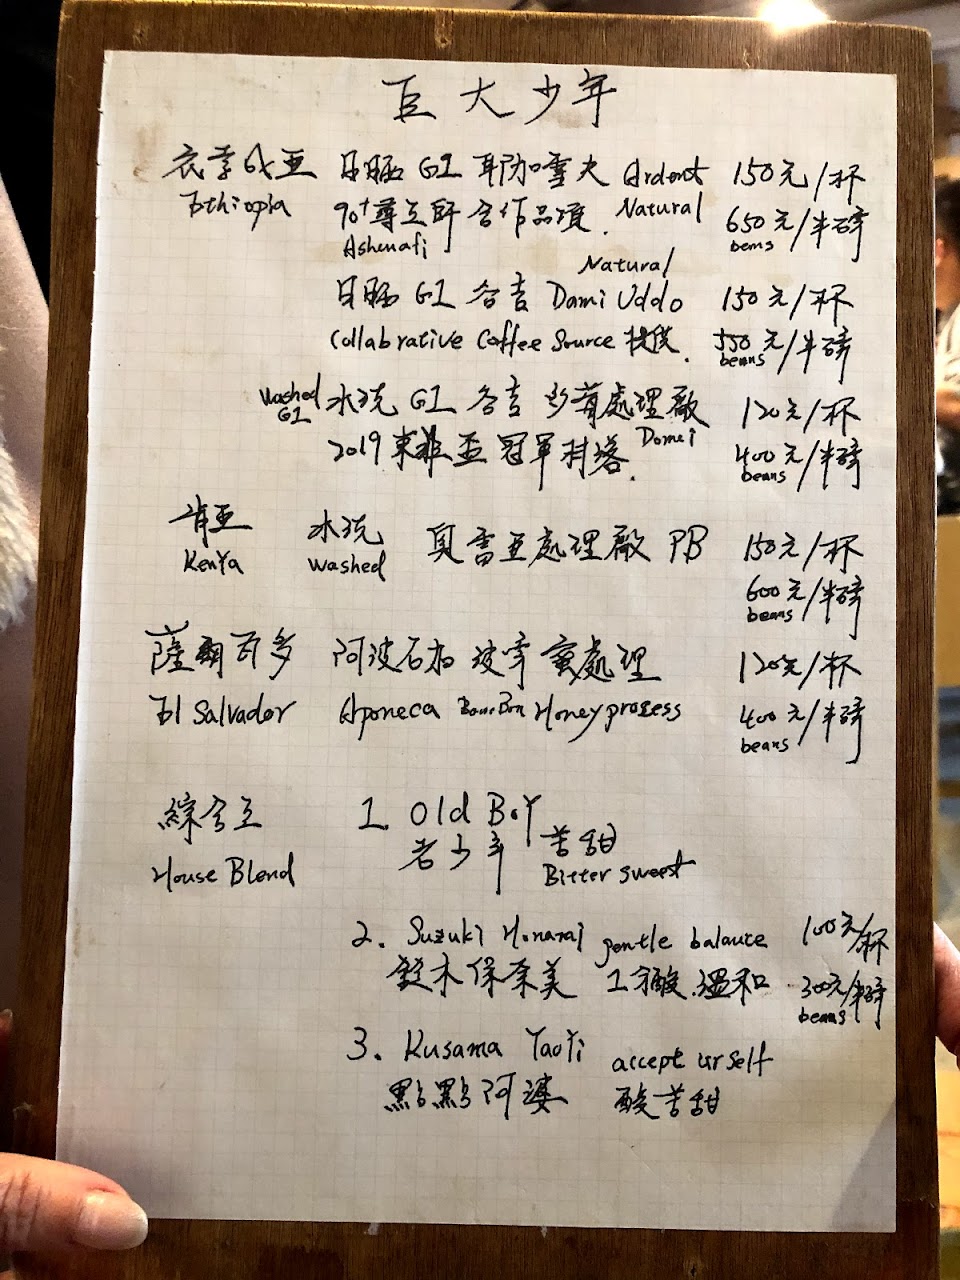 巨大少年
衣索匹亞 日曬 G1 耶加雪夫 Ardent 150元/杯
Ethiopia 90+尊巨師合作品項. Natural 650元/半磅
Ashenafi beans
Natural
日曬 G1 谷吉 Dami Uddo 150元/杯
Collabrative Coffee Source 提供. 550元/半磅
beans
Washed G1 水洗 G1 谷吉 處理廠 120元/杯
2019東非盃冠軍村落. 400元/半磅
beans
肯亞 水洗 處理廠 PB 150元/杯
KenYa washed 600元/半磅
beans
薩爾瓦多 阿波內加 波旁 蜜處理 120元/杯
El Salvador Aponeca BourBon Honey process 400元/半磅
beans
綜合豆 1. Old BoY
老少年 苦甜
House Blend Bitter sweet
2. Suzuki Honami gentle balance 100元/杯
鈴木保奈美 微酸.溫和 300元/半磅
beans
3. Kusama YaoYi accept urself
點點阿婆 酸苦甜